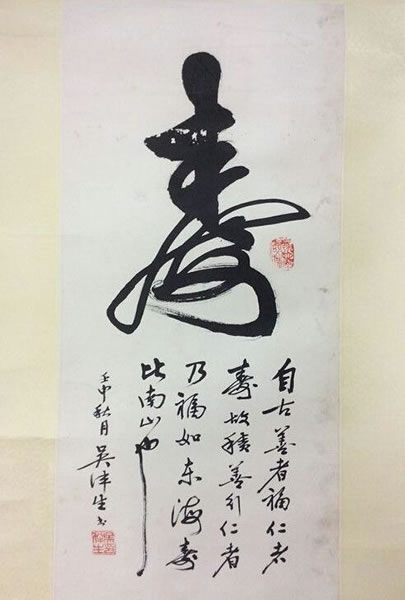 寿
自古善者福仁者
寿故積善行仁者
乃福如东海寿
比南山也
壬申秋月吴生书